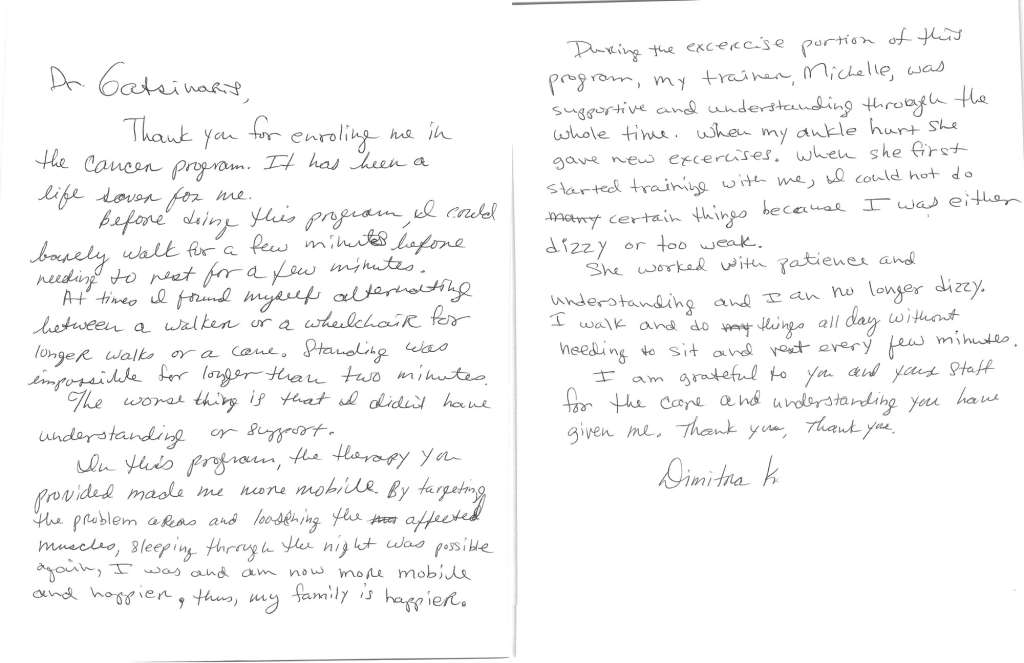 Dr Gatsinaris,
Thank you for enroling me in
the cancer program. It has been a
life saver for me.
Before doing this program, I could
barely walk for a few minutes before
needing to rest for a few minutes.
At times I found myself alternating
between a walker or a wheelchair for
longer walks or a cane. Standing was
impossible for longer than two minutes.
The worse thing is that I didn't have
understanding or support.
In this program, the therapy you
provided made me more mobile. By targeting
the problem areas and loosening the affected
muscles, sleeping through the night was possible
again, I was and am now more mobile
and happier, thus, my family is happier.
During the excercise portion of this
program, my trainer, Michelle, was
supportive and understanding through the
whole time. When my ankle hurt she
gave new excercises. When she first
started training with me, I could not do
many certain things because I was either
dizzy or too weak.
She worked with patience and
understanding and I am no longer dizzy.
I walk and do my things all day without
needing to sit and rest every few minutes.
I am grateful to you and your staff
for the care and understanding you have
given me. Thank you, Thank you.
Dimitra K